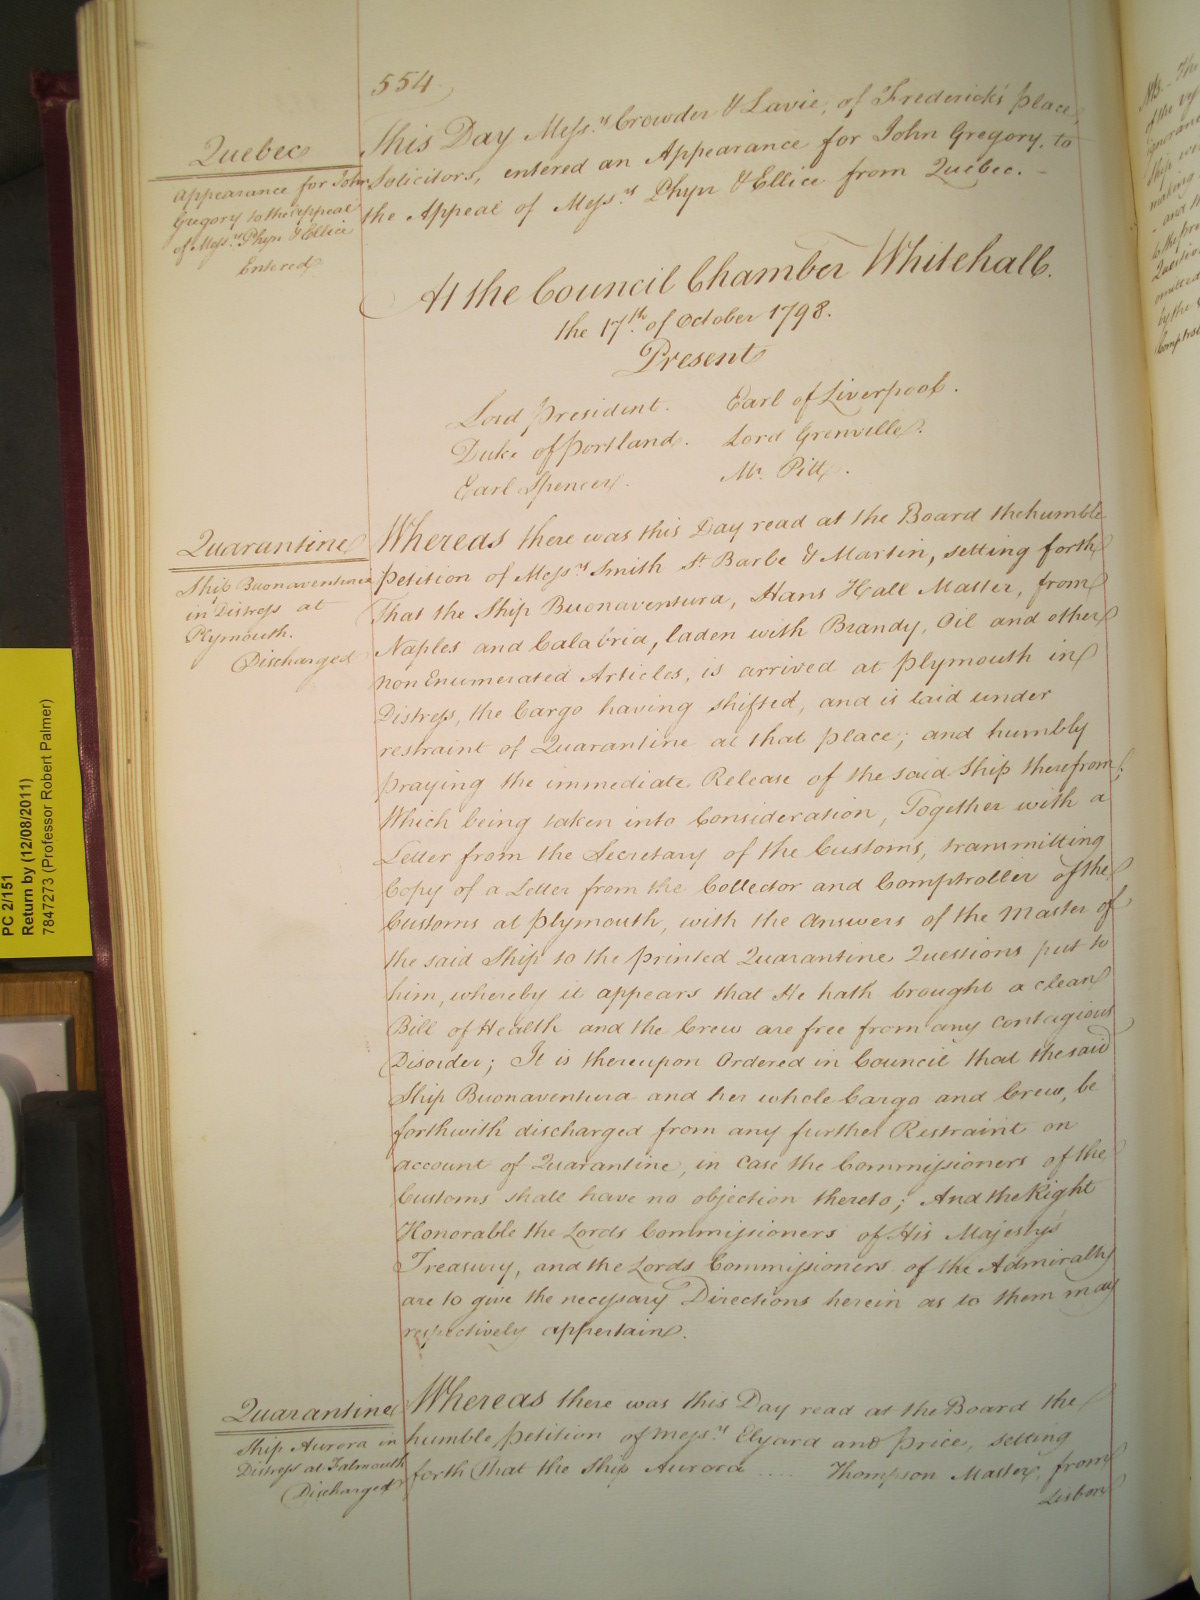 554
Quebec
Appearance for John
Gregory to the Appeal
of Mess.rs Phyn & Ellice
Entered
This Day Mess.rs Crowder & Lavie, of Frederick's place
Solicitors, entered an Appearance for John Gregory, to
the Appeal of Mess.rs Phyn & Ellice from Quebec.
At the Council Chamber Whitehall.
the 17th of October 1798.
Present
Lord President. Earl of Liverpool.
Duke of Portland. Lord Grenville.
Earl Spencer. Mr. Pitt.
Quarantine
Ship Buonaventura
in Distress at
Plymouth.
Discharged
Whereas there was this Day read at the Board the humble
Petition of Mess.rs Smith St Barbe & Martin, setting forth
That the Ship Buonaventura, Hans Hall Master, from
Naples and Calabria, laden with Brandy, Oil and other
non Enumerated Articles, is arrived at Plymouth in
Distress, the Cargo having shifted, and is laid under
restraint of Quarantine at that place; and humbly
praying the immediate Release of the said Ship therefrom;
Which being taken into Consideration, Together with a
Letter from the Secretary of the Customs, transmitting
Copy of a Letter from the Collector and Comptroller of the
Customs at Plymouth, with the Answers of the Master of
the said Ship to the printed Quarantine Questions put to
him, whereby it appears that He hath brought a clean
Bill of Health and the Crew are free from any contagious
Disorder; It is thereupon Ordered in Council that the said
Ship Buonaventura and her whole Cargo and Crew, be
forthwith discharged from any further Restraint on
account of Quarantine, in case the Commissioners of the
Customs shall have no objection thereto; And the Right
Honorable the Lords Commissioners of His Majesty's
Treasury, and the Lords Commissioners of the Admiralty
are to give the necessary Directions herein as to them may
respectively appertain.
Quarantine
Ship Aurora in
Distress at Falmouth
Discharged
Whereas there was this Day read at the Board the
humble Petition of Mess.rs Elyard and Price, setting
forth that the Ship Aurora .... Thompson Master, from
Lisbon
PC 2/151
Return by (12/08/2011)
7847273 (Professor Robert Palmer)